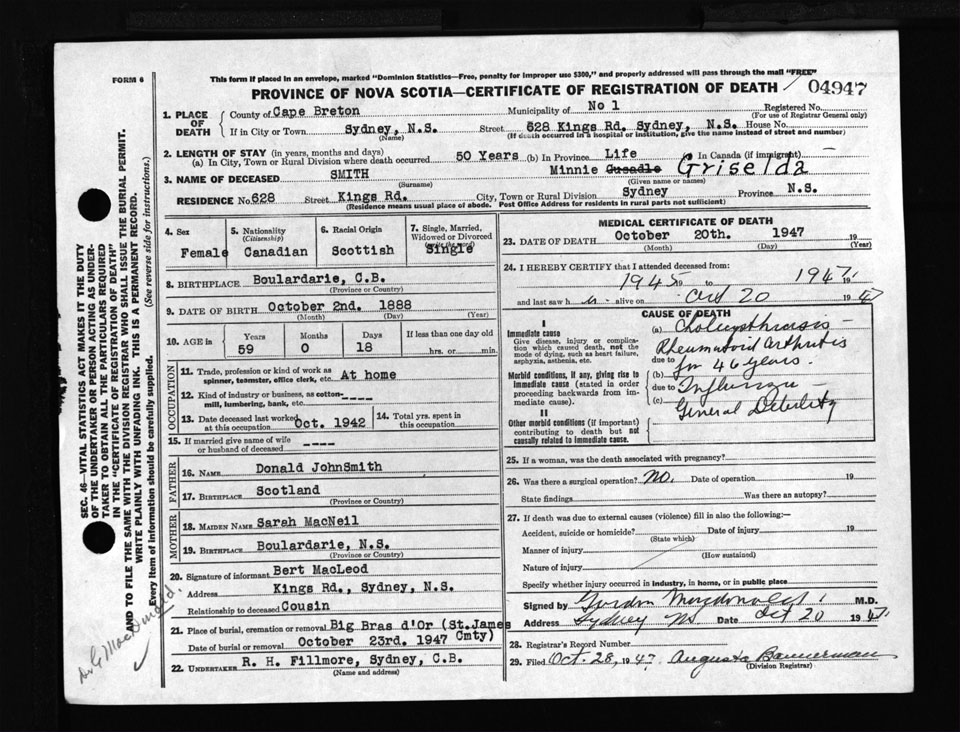 FORM 6
This form if placed in an envelope, marked "Dominion Statistics—Free, penalty for improper use $300," and properly addressed will pass through the mail "FREE"
PROVINCE OF NOVA SCOTIA—CERTIFICATE OF REGISTRATION OF DEATH 04947
1. PLACE OF DEATH
County of Cape Breton Municipality of No 1 Registered No.
(For use of Registrar General only)
If in City or Town Sydney, N.S. Street 628 Kings Rd. Sydney, N.S. House No.
(Name) (If death occurred in a hospital or institution, give the name instead of street and number)
2. LENGTH OF STAY (in years, months and days)
(a) In City, Town or Rural Division where death occurred 50 Years (b) In Province Life (c) In Canada (if immigrant) —
3. NAME OF DECEASED SMITH Minnie Griselda
(Surname) (Given name or names)
RESIDENCE No. 628 Street Kings Rd. City, Town or Rural Division Sydney Province N.S.
(Residence means usual place of abode. Post Office Address for residents in rural parts not sufficient)
4. Sex Female
5. Nationality (Citizenship) Canadian
6. Racial Origin Scottish
7. Single, Married, Widowed or Divorced (write the word) Single
8. BIRTHPLACE Boulardarie, C.B.
(Province or Country)
9. DATE OF BIRTH October 2nd. 1888
(Month) (Day) (Year)
10. AGE in Years Months Days If less than one day old
59 0 18 hrs. or min.
OCCUPATION
11. Trade, profession or kind of work as spinner, teamster, office clerk, etc. At home
12. Kind of industry or business, as cotton-mill, lumbering, bank, etc. ----
13. Date deceased last worked at this occupation Oct. 1942
14. Total yrs. spent in this occupation
15. If married give name of wife or husband of deceased ----
FATHER
16. NAME Donald JohnSmith
17. BIRTHPLACE Scotland
(Province or Country)
MOTHER
18. MAIDEN NAME Sarah MacNeil
19. BIRTHPLACE Boulardarie, N.S.
(Province or Country)
20. Signature of informant Bert MacLeod
Address Kings Rd., Sydney, N.S.
Relationship to deceased Cousin
21. Place of burial, cremation or removal Big Bras d'Or (St.James Cmty)
Date of burial or removal October 23rd. 1947
22. UNDERTAKER R. H. Fillmore, Sydney, C.B.
(Name and address)
MEDICAL CERTIFICATE OF DEATH
23. DATE OF DEATH October 20th. 1947 19
(Month) (Day) (Year)
24. I HEREBY CERTIFY that I attended deceased from:
1945 19 to 1947 19
and last saw h er alive on Oct 20 1947
CAUSE OF DEATH
I
Immediate cause
Give disease, injury or complication which caused death, not the mode of dying, such as heart failure, asphyxia, asthenia, etc.
Morbid conditions, if any, giving rise to immediate cause (stated in order proceeding backwards from immediate cause).
II
Other morbid conditions (if important) contributing to death but not causally related to immediate cause.
(a)
Rheumatoid Arthritis
due to for 46 years.
(b)
due to Influenza —
(c) General Debility
25. If a woman, was the death associated with pregnancy?
26. Was there a surgical operation? No. Date of operation 19
State findings Was there an autopsy?
27. If death was due to external causes (violence) fill in also the following:—
Accident, suicide or homicide? Date of injury 19
(State which)
Manner of injury
(How sustained)
Nature of injury
Specify whether injury occurred in industry, in home, or in public place
Signed by Gordon Macdonald M.D.
Address Sydney NS Date Oct 20 1947
28. Registrar's Record Number
29. Filed Oct. 28, 1947 Augusta Bannerman
(Division Registrar)
SEC. 46—VITAL STATISTICS ACT MAKES IT THE DUTY
OF THE UNDERTAKER OR PERSON ACTING AS UNDER-
TAKER TO OBTAIN ALL THE PARTICULARS REQUIRED
IN THE "CERTIFICATE OF REGISTRATION OF DEATH"
AND TO FILE THE SAME WITH THE DIVISION REGISTRAR WHO SHALL ISSUE THE BURIAL PERMIT.
WRITE PLAINLY WITH UNFADING INK. THIS IS A PERMANENT RECORD.
Every item of information should be carefully supplied. (See reverse side for instructions.)
Dr G MacDonald.